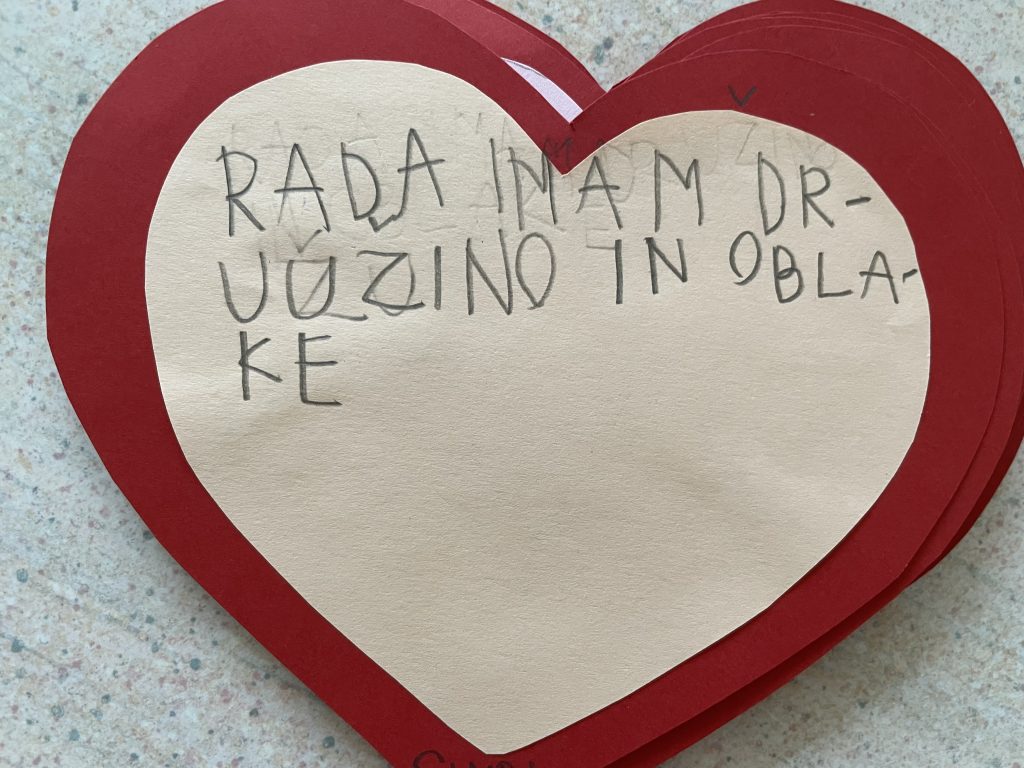 RADA IMAM DR-
UUŽINO IN OBLA-
KE